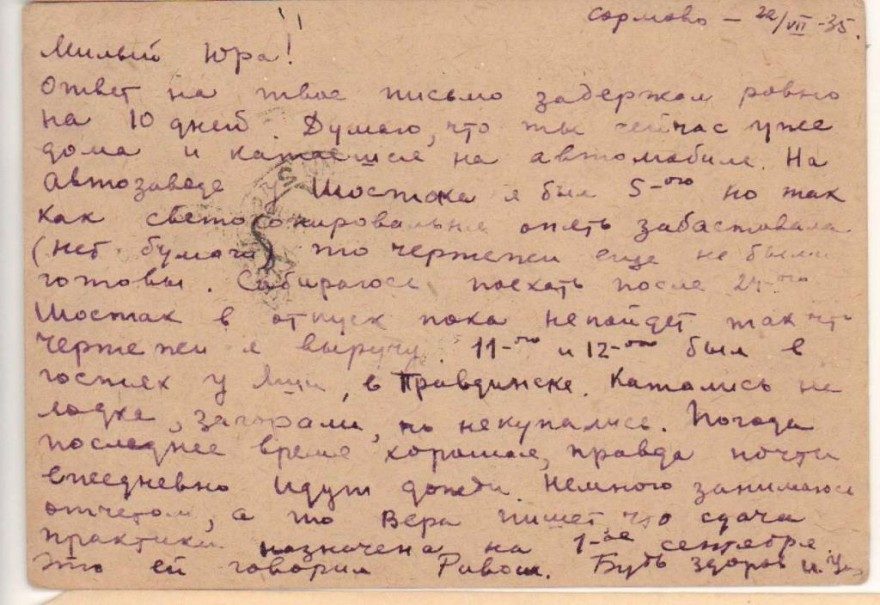 Сормово – 22/VII-35.
Милый Юра!
Ответ на твое письмо задержал ровно
на 10 дней. Думаю, что ты сейчас уже
дома и катаешься на автомобиле. На
Автозаводе у Шостака я был 5-ого но так
как светокопировальня опять забастовала
(нет бумаги) то чертежи еще не были
готовы. Собираюсь поехать после 24-ого
Шостак в отпуск пока непойдет так что
чертежи я выручу. 11-ого и 12-ого был в
гостях у Яши, в Правдинске. Катались на
лодке, загорали, но некупались. Погода
последнее время хорошая, правда почти
ежедневно идут дожди. Немного занимаюсь
отчетом, а то Вера пишет что сдача
практики назначена на 1-ое сентября.
Это ей говорил Равош. Будь здоров